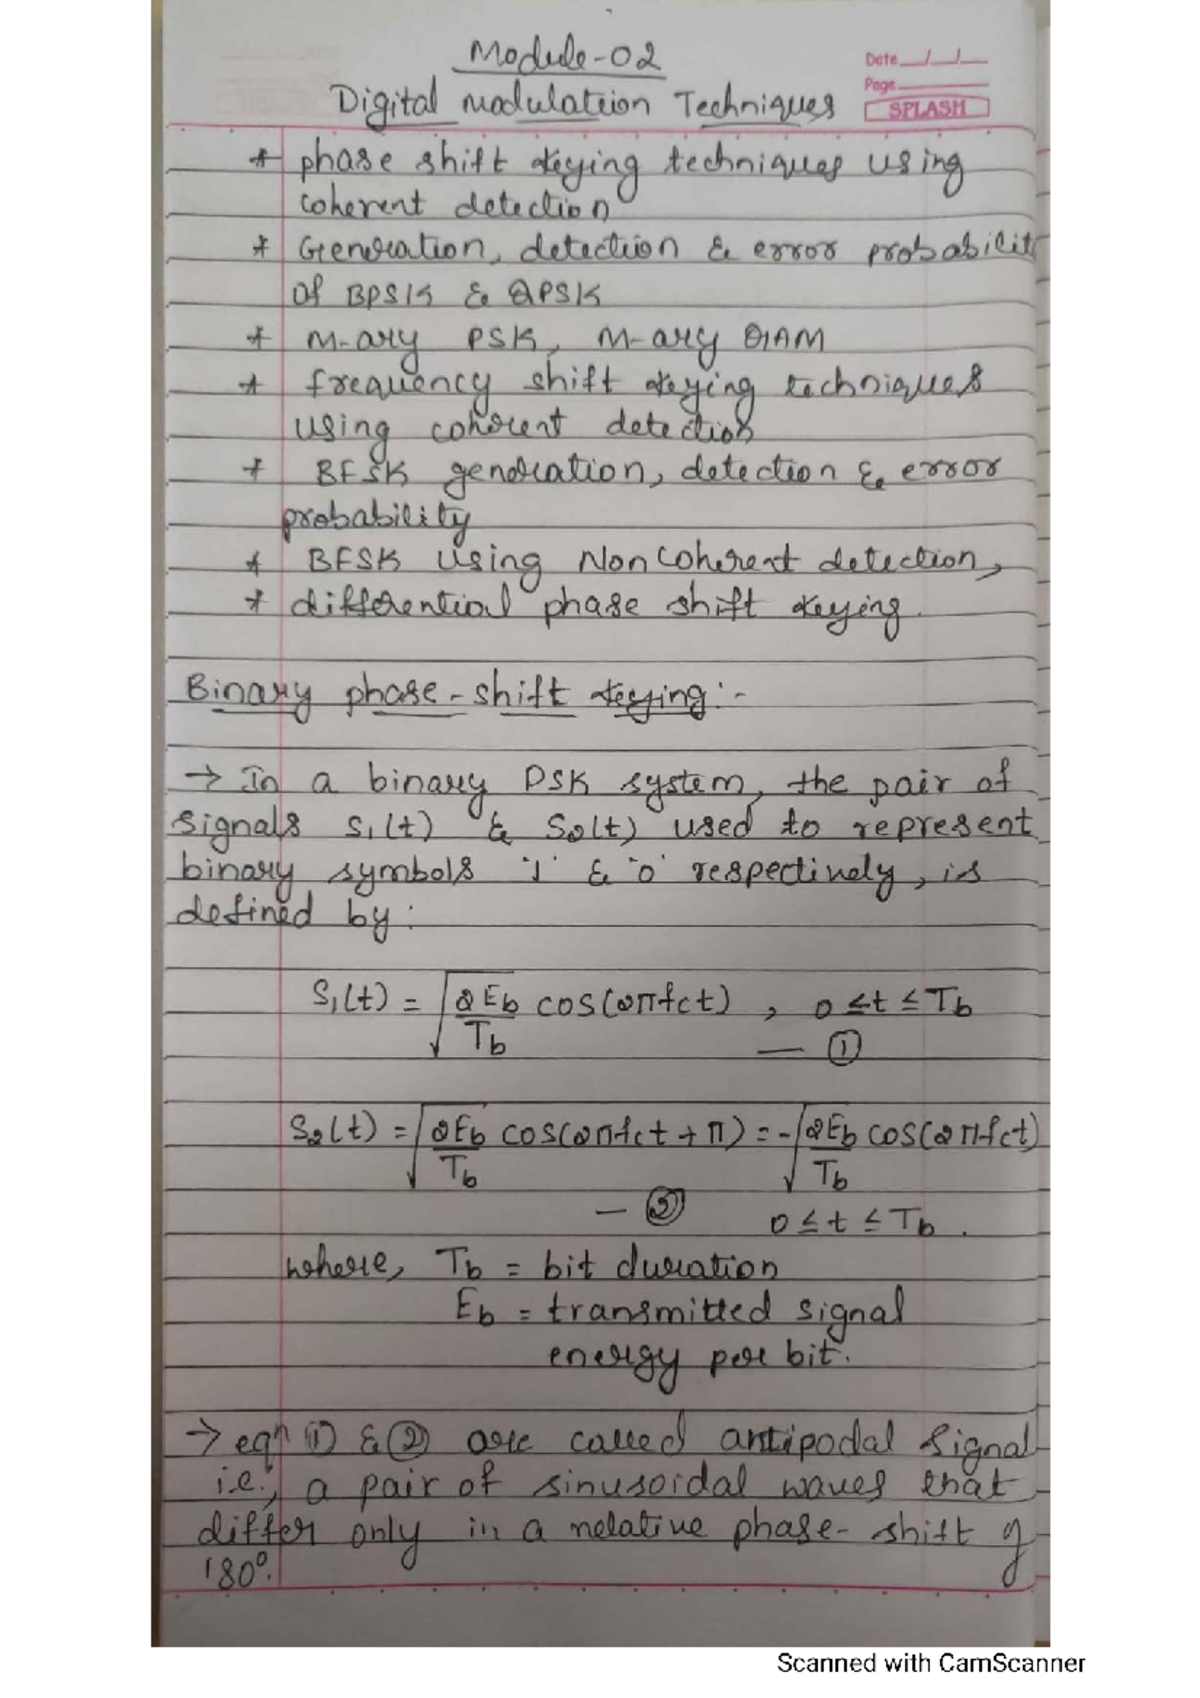 Module-02
Digital modulateion Techniques
Date __/__/__
Page
SPLASH
* phase shift keying techniques using
coherent detection
* Generation, detection & error probabilit
of BPSK & QPSK
* M-ary PSK, M-ary QAM
* frequency shift keying techniques
using coherent detection
* BFSK generation, detection & error
probability
* BFSK using Non Coherent detection,
* differential phase shift keying.
Binary phase-shift keying:-
→ In a binary PSK system, the pair of
signals S₁(t) & S₂(t) used to represent
binary symbols '1' & '0' respectively, is
defined by:
S₁(t) = √(2Eb/Tb) cos(2πfct) , 0 ≤ t ≤ Tb
— ①
S₂(t) = √(2Eb/Tb) cos(2πfct + π) = -√(2Eb/Tb) cos(2πfct)
— ② 0 ≤ t ≤ Tb.
where, Tb = bit duration
Eb = transmitted signal
energy per bit.
→ eqⁿ ① & ② are called antipodal signal
i.e., a pair of sinusoidal waves that
differ only in a relative phase-shift of
180°.
Scanned with CamScanner